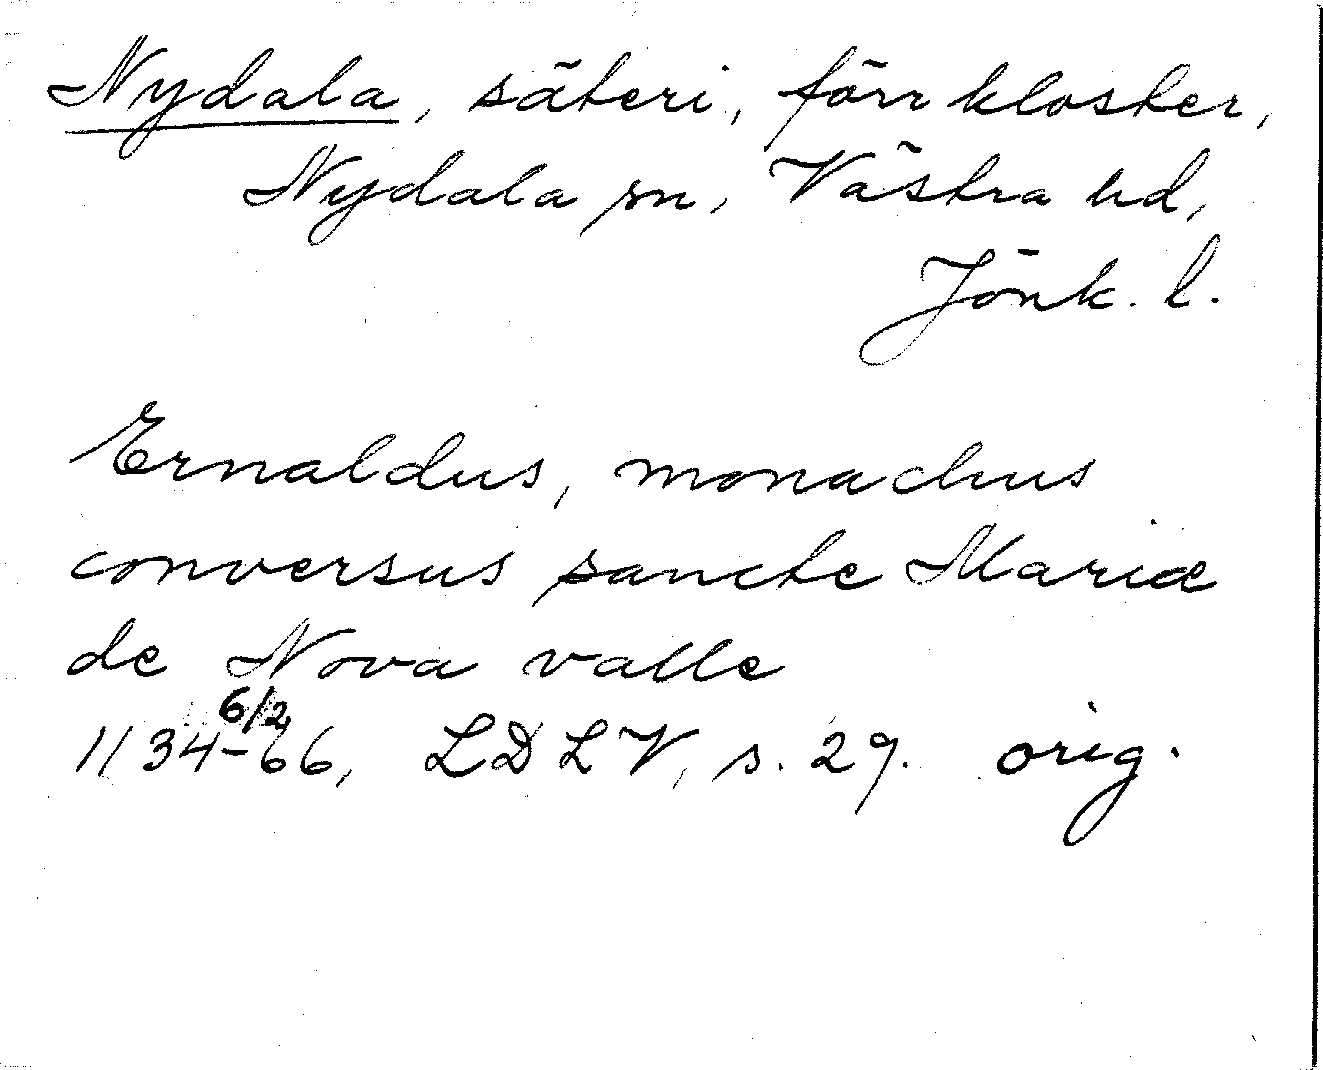 Nydala, säteri, förr kloster,
Nydala sn, Västra hd,
Jönk. l.
Ernaldus, monachus
conversus sancte Mariæ
de Nova valle
6/2
1134-66, LDLV, s. 29. orig.